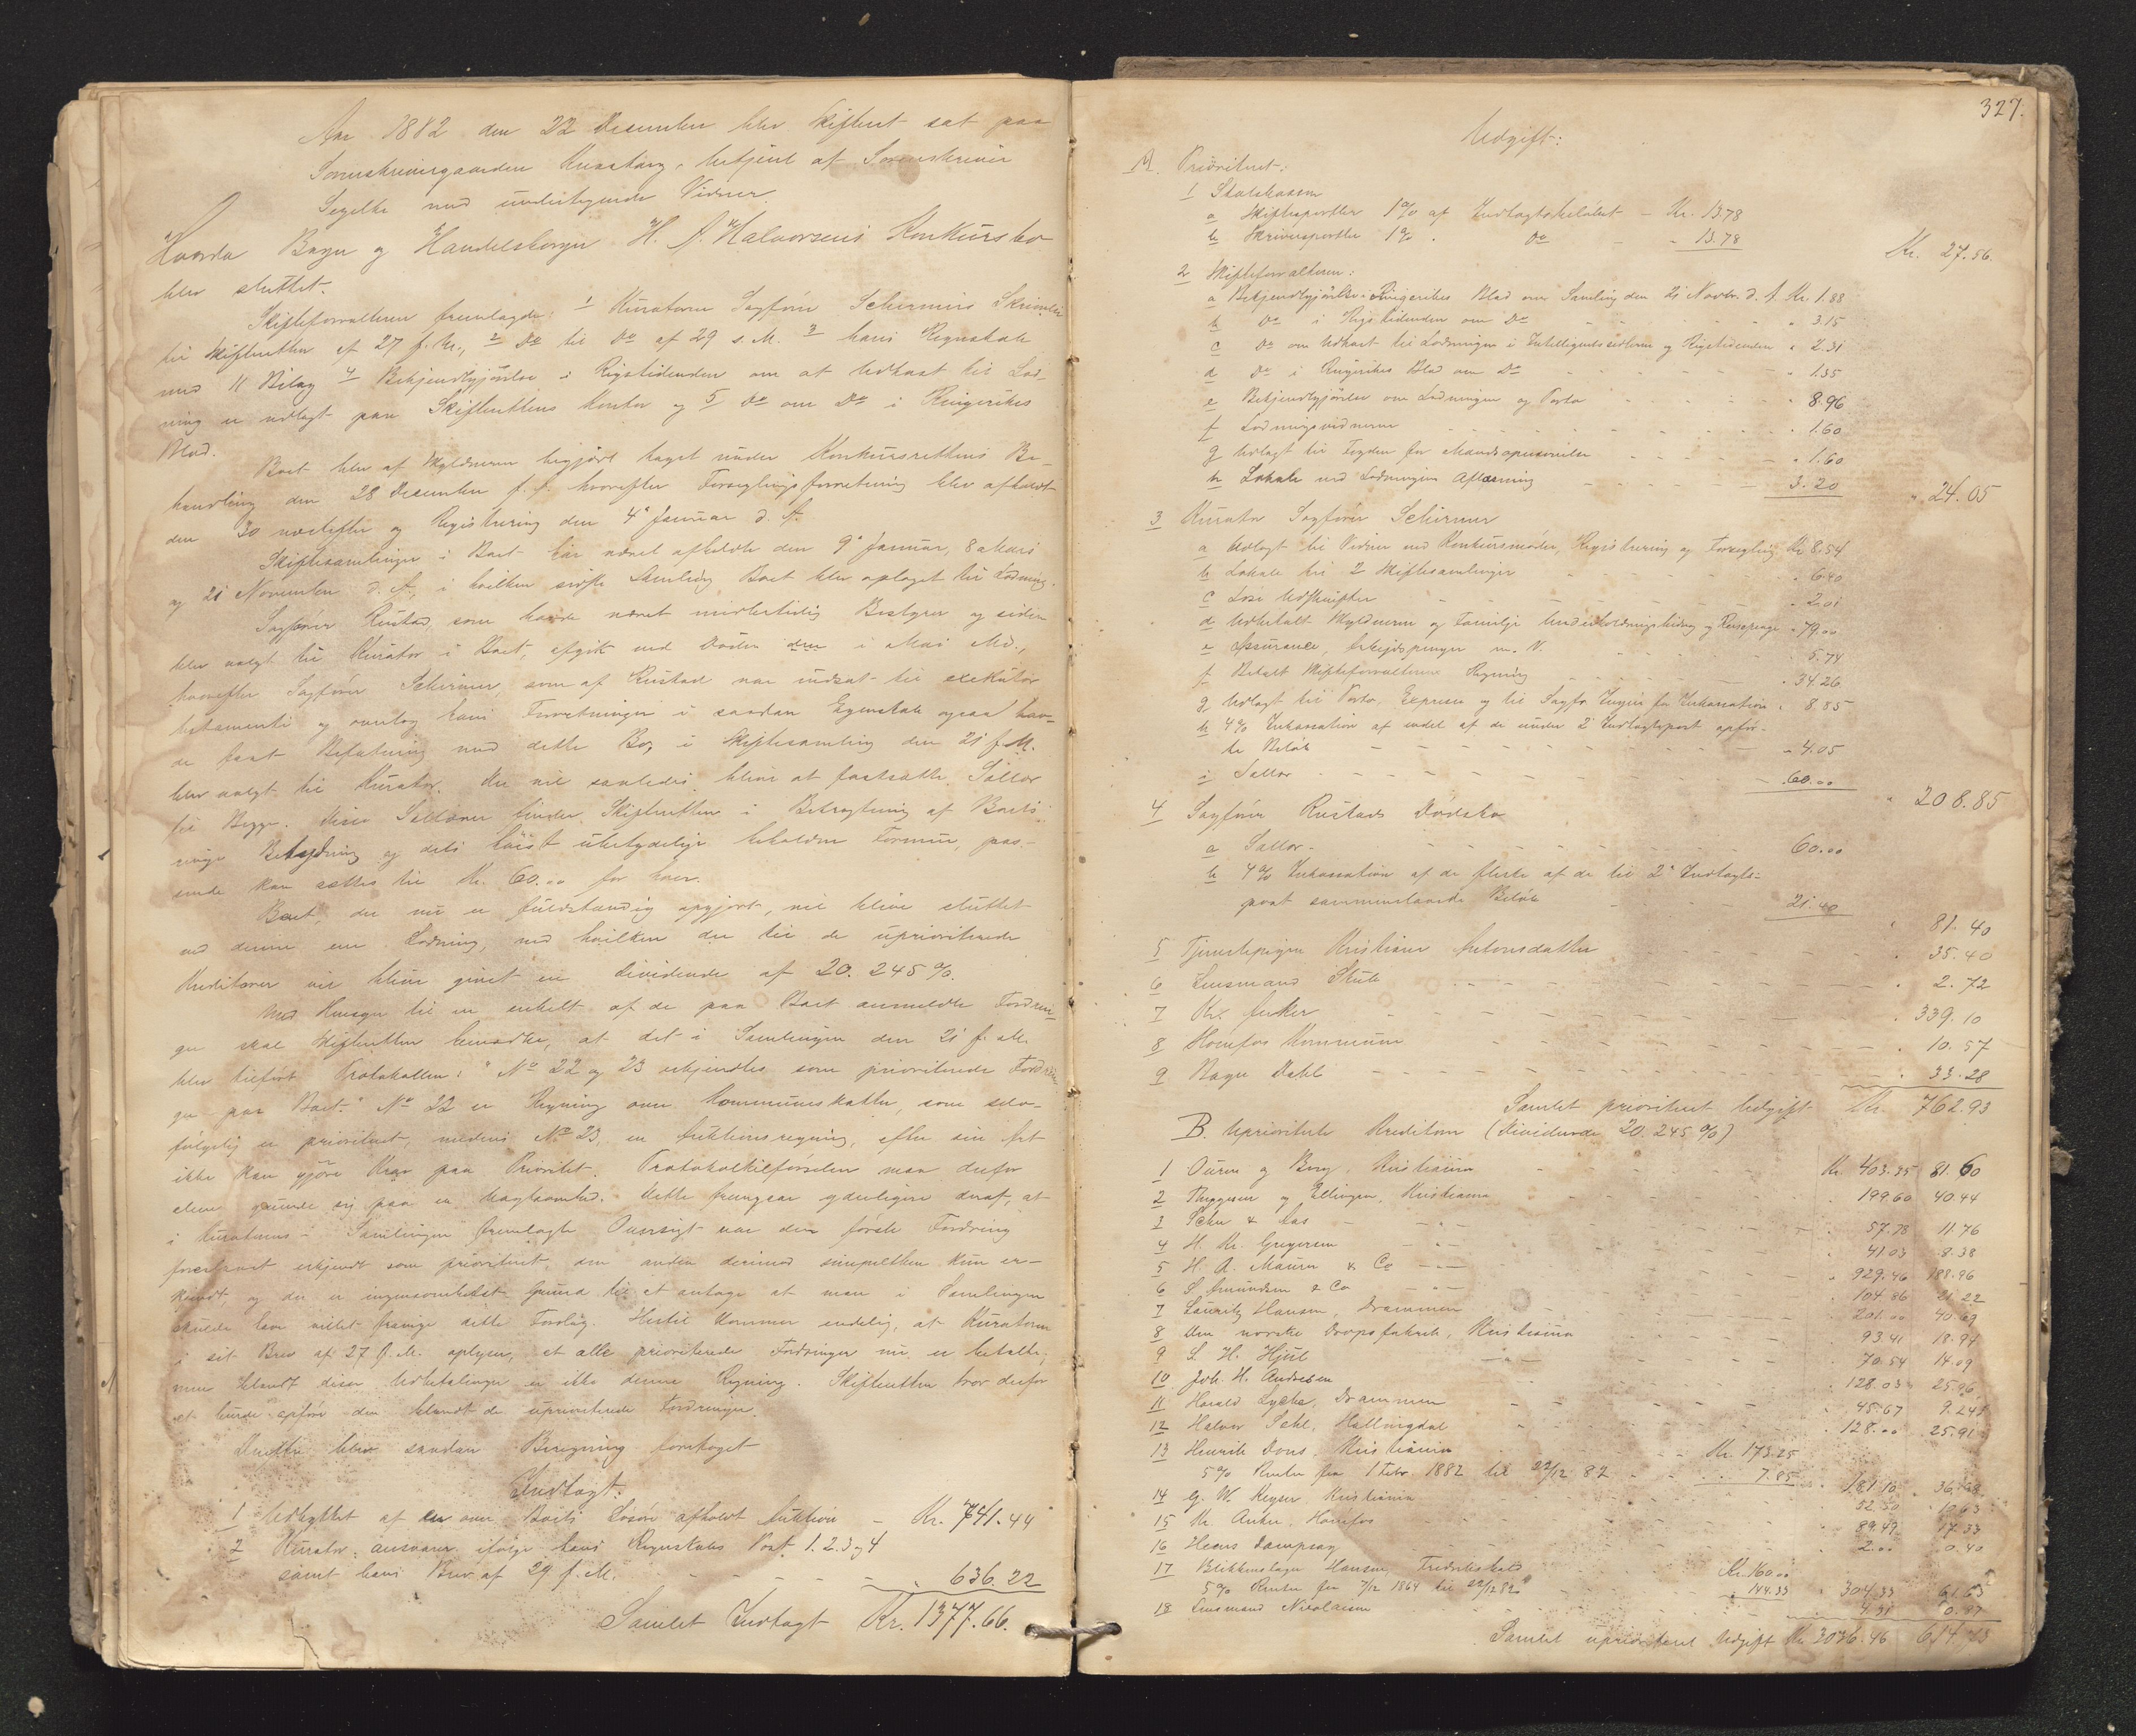 Aar 1882 den 22 December blev Skifteret sat paa
Sorenskrivergaarden betjent af Sorenskriver
Segelke med undertegnede Vidner.
Hvorda Bager og Handelsborger H. A. Halvorsens Konkursbo
blev sluttet.
Skifteforvalteren fremlagde: 1 Kurators Sagfører Schirmers Skrivelse
til Skifteretten af 27 f. M., 2 Do til Do af 29 s. M. 3 hans Regnskab
med 11 Bilag 4 Bekjendtgjørelse i Rigstidenden om at Udkast til Lod-
ning er udlagt paa Skifterettens Kontor og 5 Do om Do i Ringerikes
Blad.
Boet blev af Skyldneren begjært taget under Konkursrettens Be-
handling den 28 December f. A. hvorefter Forseglingsforretning blev afholdt
den 30 næstefter og Registrering den 4 Januar d. A.
Skiftesamlinger i Boet har været afholdte den 9 Januar, 8 Mars
og 21 November d. A., i hvilken sidste Samling Boet blev optaget til Lodning.
Sagfører Rustad, som havde været midlertidig Bestyrer og siden
blev valgt til Kurator i Boet, afgik ved Døden i Mai Md.,
hvorefter Sagfører Schirmer, som af Rustad var indsat til exekutor
testamenti og overtog hans Forretninger i saadan Egenskab ogsaa hav-
de faat Befatning med dette Bo, i Skiftesamling den 21 f. M.
blev valgt til Kurator. Der vil saaledes blive at fastsætte Sallær
til Begge. Disse Sallærer finder Skifteretten i Betragtning af Boets
ringe Betydning og dets høist ubetydelige beholdne Formue, pas-
sende kan sættes til Kr. 60.00 for hver.
Boet, der nu er fuldstændig opgjort, vil blive sluttet
ved denne ene Lodning, ved hvilken der til de uprioriterede
Kreditorer vil blive givet en Dividende af 20.245 %.
Med Hensyn til en enkelt af de paa Boet anmeldte Fordrin-
ger skal Skifteretten bemærke, at det i Samlingen den 21 f. M.
blev tilført Protokollen: "No 22 og 23 erkjendtes som prioriterede Fordrin-
ger paa Boet." No 22 er Regning over Kommuneskatter, som selv-
følgelig er prioriteret, medens No 23, en Auktionsregning, efter sin Art
ikke kan gjøre Krav paa Prioritet. Protokoltilførselen maa derfor
alene grunde sig paa en Uagtsomhed. Dette fremgaar yderligere deraf, at
i Kuratorens i Samlingen fremlagte Oversigt var den første Fordring
foreslaaet erkjendt som prioriteret, den anden derimod simpelthen kun er-
kjendt, og der er ingensomhelst Grund til at antage at man i Samlingen
skulde have villet fravige dette Forslag. Hertil kommer endelig, at Kuratoren
i sit Brev af 27 f. M. oplyser, at alle prioriterede Fordringer nu er betalte,
men blandt disse Udbetalinger er ikke denne Regning. Skifteretten tror derfor
at burde opføre den blandt de uprioriterede Fordringer.
Derefter blev saadan Beregning foretaget
Indtægt:
1 Udbyttet af en over Boets Løsøre afholdt Auktion - Kr. 741.44
2 Kurator ansvarer ifølge hans Regnskabs Post 1.2.3 og 4
samt hans Brev af 29 f. M. - - - - 636.22
Samlet Indtægt Kr. 1377.66.
327.
Udgift:
A. Prioriteret:
1 Statskassen
a Skiftesportler 1% af Indtægtsbeløbet - Kr. 13.78
b Skriversportler 1% " Do - " 13.78
Kr. 27.56.
2 Skifteforvalteren:
a Bekjendtgjørelse i Ringerikes Blad om Samling den 21 Novbr. d. A. Kr. 1.88
b Do i Rigstidenden om Do " 3.15
c Do om Udkast til Lodningen i Intelligentssedlerne og Rigstidenden " 2.31
d Do i Ringerikes Blad om Do " 1.35
e Bekjendtgjørelse om Lodningen og Porto " 8.96
f Lodningsvidnerne " 1.60
g Udlagt til Fogden for " 1.60
h Lokale ved Lodningens Aflæsning 3.20
" 24.05
3 Kurator Sagfører Schirmer
a Udlagt til Vidner ved Konkursmøder, Registrering og Forsegling Kr 8.54
b Lokale til 2 Skiftesamlinger " 6.40
c Løse Udskrifter " 2.01
d Udbetalt Skyldneren og Familje Underholdningsbidrag og Reisepenge " 79.00
e Assurance, Arbeidspenger m. V. 5.74
f Betalt Skifteforvalterens Regning " 34.26
g Udlagt til Porto, Expresse og til Sagfører for Inkassation " 8.85
h 4% Inkassation af endel af de under 2 Indtægtspost opfør-
te Beløb - 4.05
i Sallær - 60.00
" 208.85
4 Sagfører Rustads Dødsbo
a Sallær 60.00
b 4% Inkassation af de fleste af de til 2 Indtægts-
post sammenlagte Beløb 21.40
81.40
5 Tjenestepigen Kristiane Antonsdatter 35.40
6 Lensmand " 2.72
7 Kr. Anker 339.10
8 Hønefos Kommune " 10.57
9 Dahl " 33.28
Samlet prioriteret Udgift Kr. 762.93
B. Uprioriterte Kreditorer (Dividende 20.245 %)
1 Ouren og Berg, Kristiania Kr. 403.35 81.60
2 Thygesen og Ellingsen, Kristiania 199.60 40.44
3 57.78 11.76
4 H. Kr. Gregersen 41.03 8.38
5 H. A. Maurer & Co 929.46 188.96
6 S. Amundsen & Co 104.86 21.22
7 Lauritz Hansen, Drammen 201.00 40.69
8 Den norske Dropsfabrik, Kristiania 93.41 18.94
9 L. H. Hjul 70.54 14.09
10 Joh. H. Andresen 128.03 25.96
11 Harald Lyche, Drammen 45.67 9.245
12 Halvor Hallingdal 128.00 25.91
13 Henrik Dons, Kristiania Kr. 173.25
5% Renter fra 1 Febr. 1882 til 22/12 82 7.85 181.10
14 G. W. Keyser, Kristiania 52.50 10.63
15 Kr. Anker, Hønefos 89.49 17.33
16 Heens Dampsag 2.00 0.40
17 Blikkenslager Hansen, Fredrikshald Kr. 160.00
5% Renter fra 7/12 1864 til 22/12 82 144.33 304.33 61.63
18 Lensmand Nicolaisen 4.31 0.87
Samlet uprioriteret Udgift Kr 3036.46